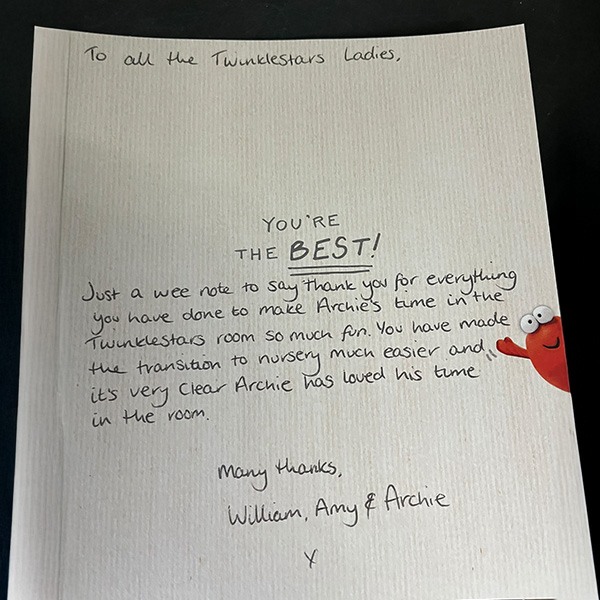 To all the Twinklestars Ladies,
YOU'RE
THE BEST!
Just a wee note to say thank you for everything
you have done to make Archie's time in the
Twinklestars room so much fun. You have made
the transition to nursery much easier and
it's very clear Archie has loved his time
in the room.
Many thanks,
William, Amy & Archie
X